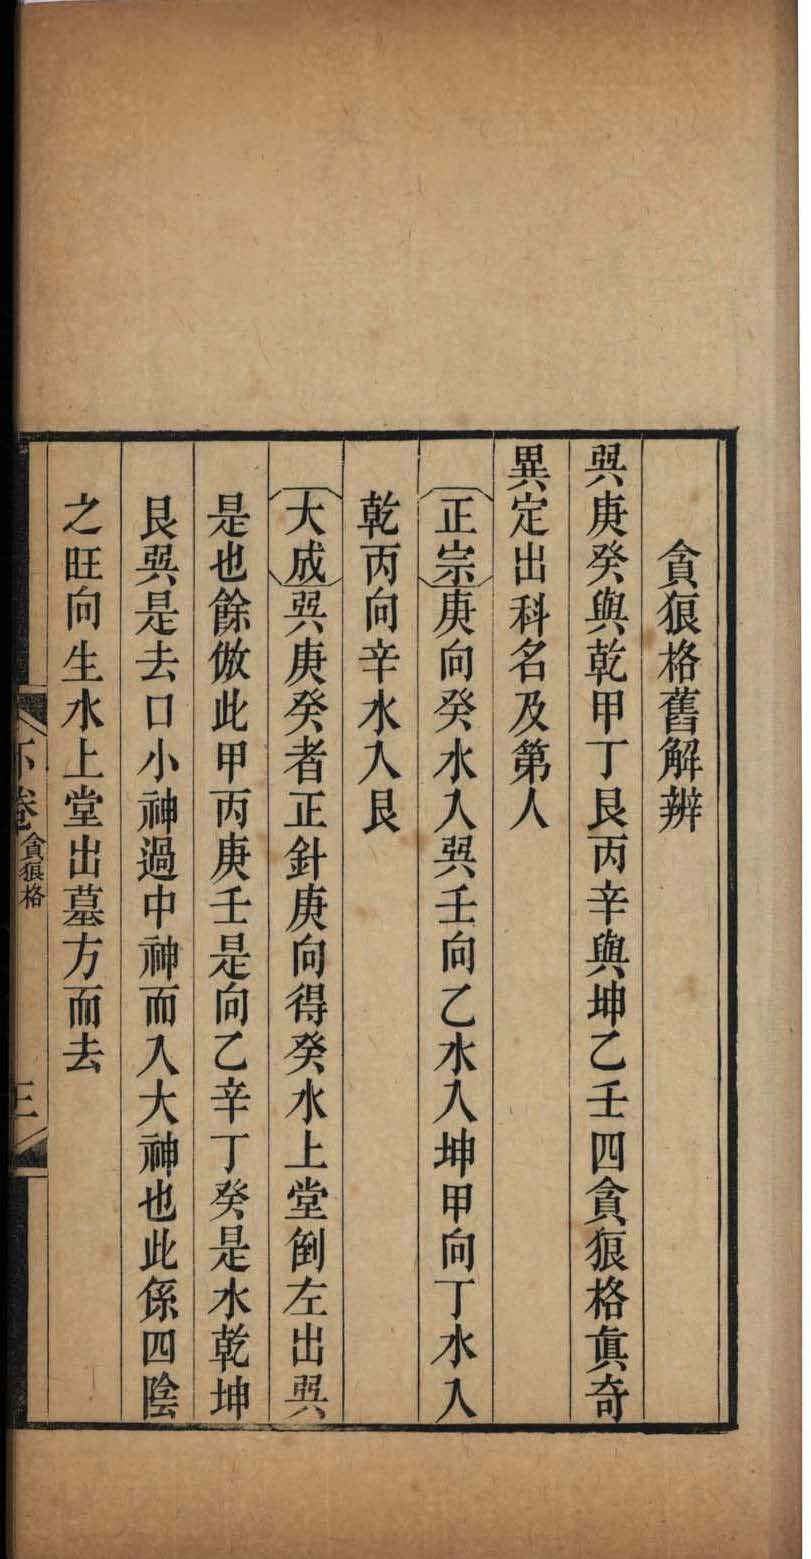 貪狼格舊解辨
巽庚癸與乾甲丁艮丙辛與坤乙壬四貪狼格眞奇
異定出科名及第人
正宗庚向癸水入巽壬向乙水入坤甲向丁水入
乾丙向辛水入艮
大成巽庚癸者正針庚向得癸水上堂倒左出巽
是也餘倣此甲丙庚壬是向乙辛丁癸是水乾坤
艮巽是去口小神過中神而入大神也此係四陰
之旺向生水上堂出墓方而去
下卷 貪狼格 三